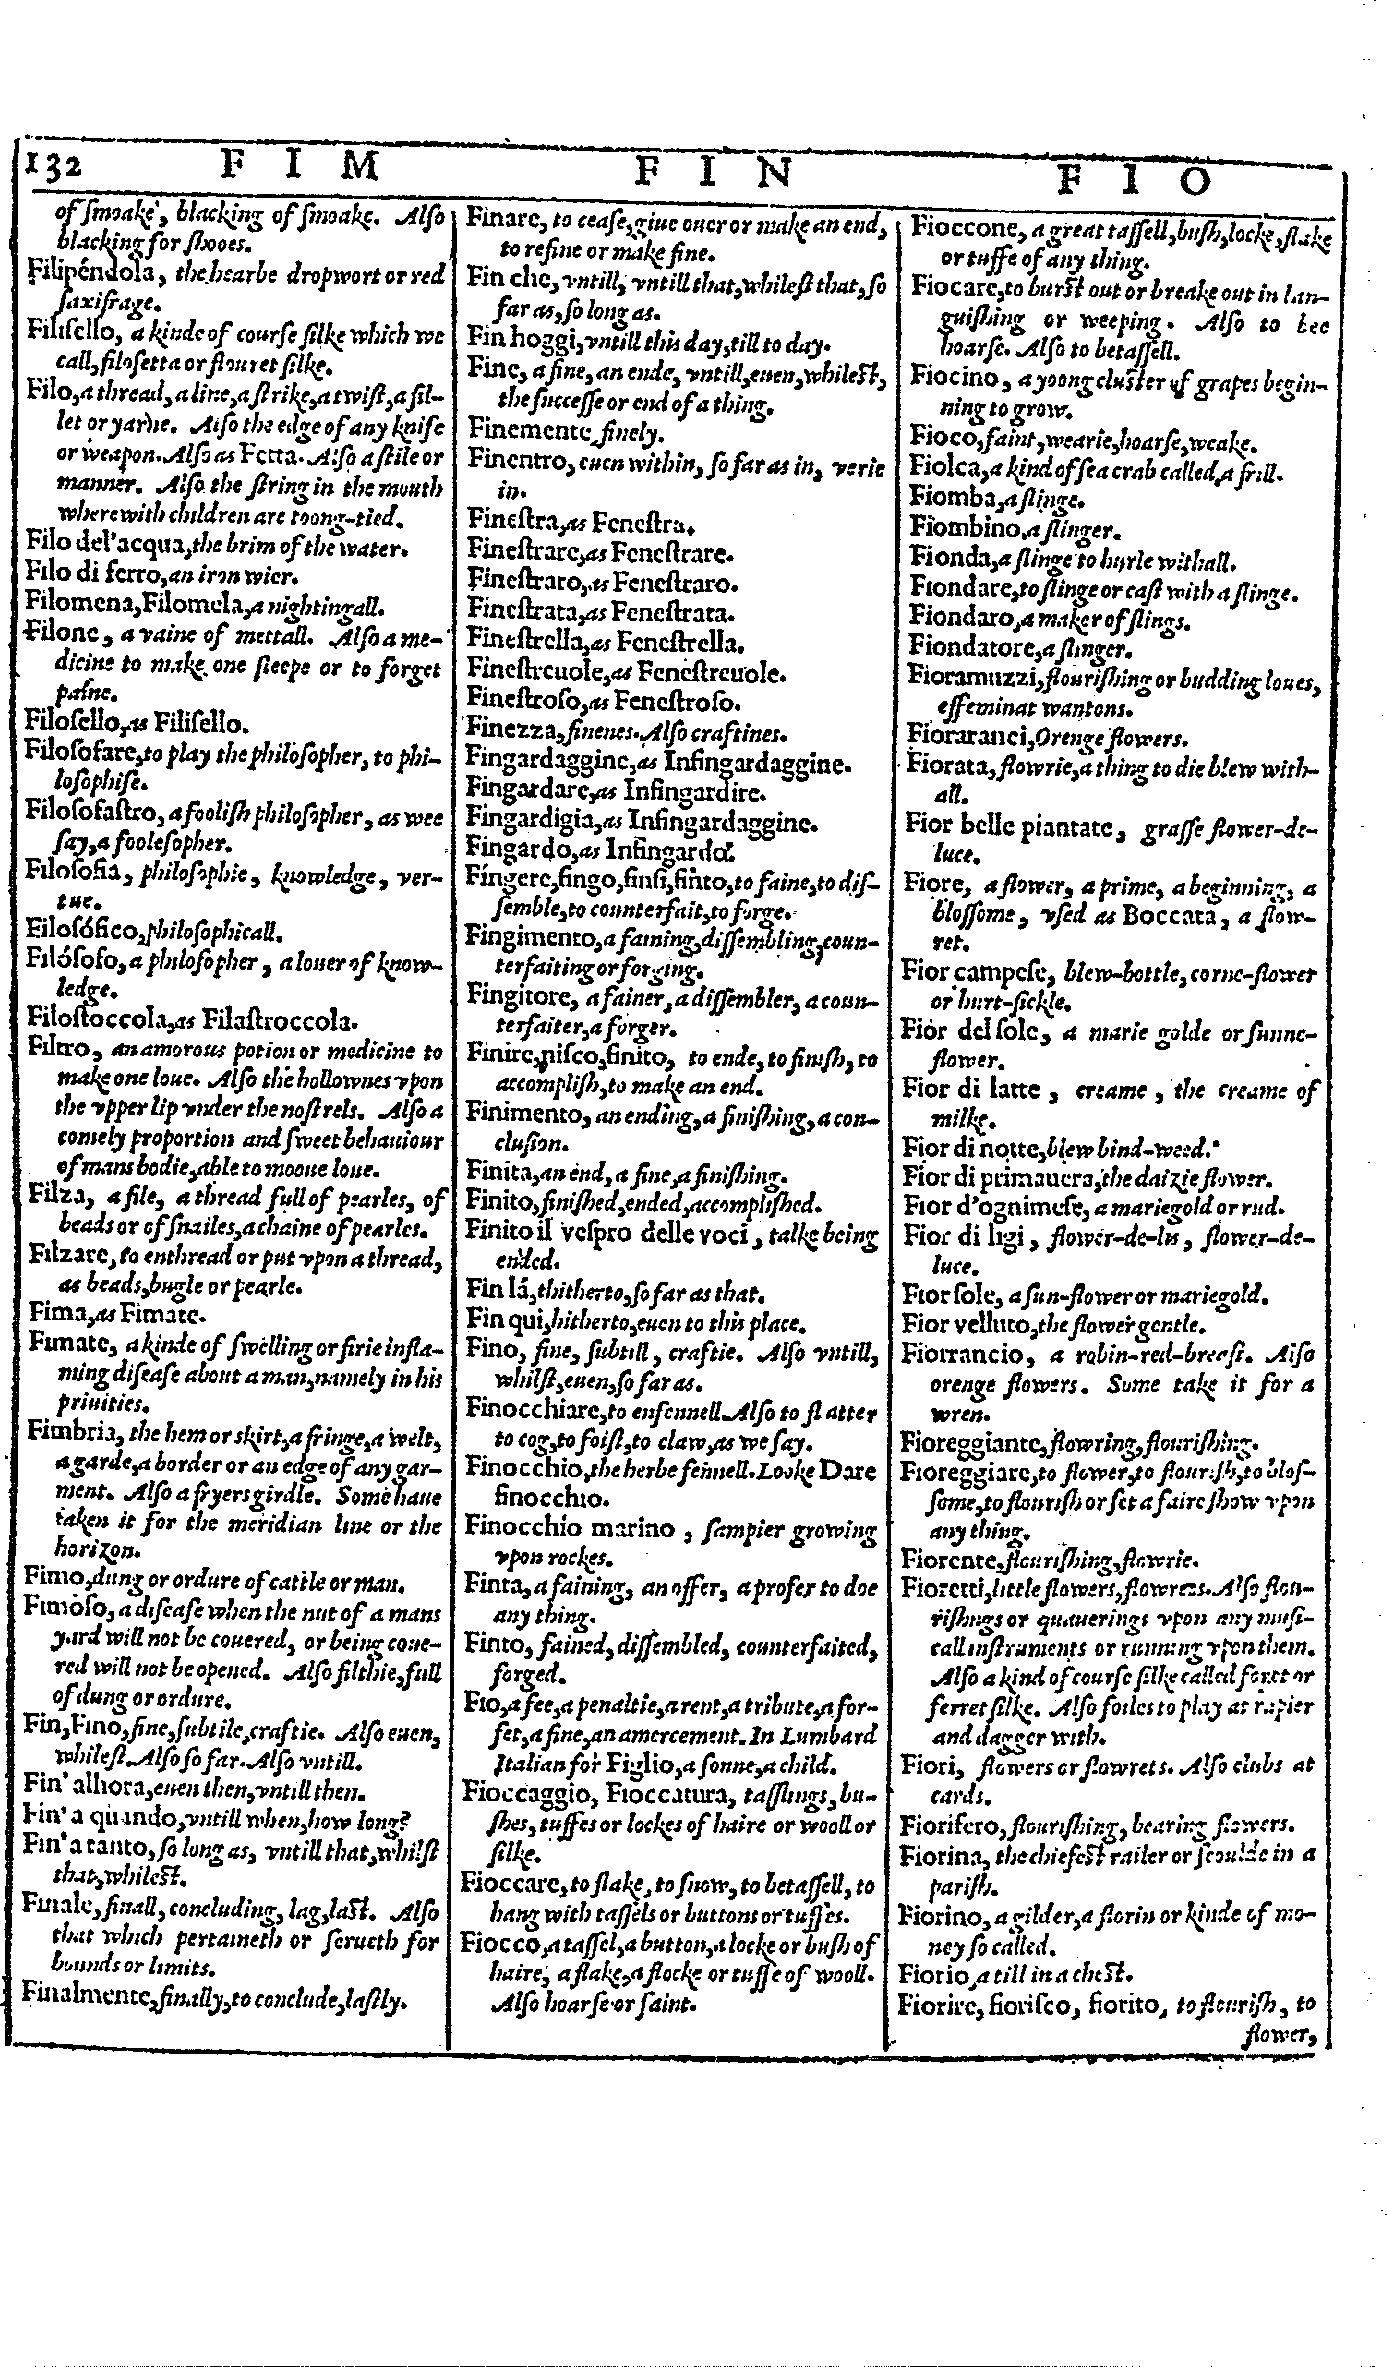 132 F I M F I N F I O
of ſmoake, blacking of ſmoake. Alſo
blacking for ſhooes.
Filipéndola, the hearbe dropwort or red
ſaxifrage.
Filiſello, a kinde of courſe ſilke which we
call, filoſetta or flouret ſilke.
Filo, a thread, a line, a ſtrike, a twiſt, a fil-
let or yarne. Alſo the edge of any knife
or weapon. Alſo as Fetta. Alſo a ſtile or
manner. Alſo the ſtring in the mouth
wherewith children are toong-tied.
Filo del'acqua, the brim of the water.
Filo di ferro, an iron wier.
Filomena, Filomela, a nightingall.
Filone, a vaine of mettall. Alſo a me-
dicine to make one ſleepe or to forget
paine.
Filoſello, as Filiſello.
Filoſofare, to play the philoſopher, to phi-
loſophiſe.
Filoſofaſtro, a fooliſh philoſopher, as wee
ſay, a fooleſopher.
Filoſofia, philoſophie, knowledge, ver-
tue.
Filoſófico, philoſophicall.
Filóſofo, a philoſopher, a louer of know-
ledge.
Filoſtoccola, as Filaſtroccola.
Filtro, an amorous potion or medicine to
make one loue. Alſo the hollownes vpon
the vpper lip vnder the noſtrels. Alſo a
comely proportion and ſweet behauiour
of mans bodie, able to mooue loue.
Filza, a file, a thread full of pearles, of
beads or of ſnailes, a chaine of pearles.
Filzare, to enthread or put vpon a thread,
as beads, bugle or pearle.
Fima, as Fimate.
Fimate, a kinde of ſwelling or firie infla-
ming diſeaſe about a man, namely in his
priuities.
Fimbria, the hem or skirt, a fringe, a welt,
a garde, a border or an edge of any gar-
ment. Alſo a fryers girdle. Some haue
taken it for the meridian line or the
horizon.
Fimo, dung or ordure of cattle or man.
Fimoſo, a diſeaſe when the nut of a mans
yard will not be couered, or being coue-
red will not be opened. Alſo filthie, full
of dung or ordure.
Fin, Fino, fine, ſubtile, craftie. Alſo euen,
whileſt. Alſo ſo far. Alſo vntill.
Fin' alhora, euen then, vntill then.
Fin' a quando, vntill when, how long?
Fin' a tanto, ſo long as, vntill that, whilſt
that, whileſt.
Finale, finall, concluding, lag, laſt. Alſo
that which pertaineth or ſerueth for
bounds or limits.
Finalmente, finally, to conclude, laſtly.
Finare, to ceaſe, giue ouer or make an end,
to refine or make fine.
Fin che, vntill, vntill that, whileſt that, ſo
far as, ſo long as.
Fin hoggi, vntill this day, till to day.
Fine, a fine, an ende, vntill, euen, whileſt,
the ſucceſſe or end of a thing.
Finemente, finely.
Finentro, euen within, ſo far as in, verie
in.
Fineſtra, as Feneſtra.
Fineſtrare, as Feneſtrare.
Fineſtraro, as Feneſtraro.
Fineſtrata, as Feneſtrata.
Fineſtrella, as Feneſtrella.
Fineſtreuole, as Feneſtreuole.
Fineſtroſo, as Feneſtroſo.
Finezza, finenes. Alſo craftines.
Fingardaggine, as Infingardaggine.
Fingardare, as Infingardire.
Fingardigia, as Infingardaggine.
Fingardo, as Infingardo.
Fíngere, fingo, finſi, finto, to faine, to diſ-
ſemble, to counterfait, to forge.
Fingimento, a faining, diſſembling, coun-
terfaiting or forging.
Fingitore, a fainer, a diſſembler, a coun-
terfaiter, a forger.
Finire, niſco, finito, to ende, to finiſh, to
accompliſh, to make an end.
Finimento, an ending, a finiſhing, a con-
cluſion.
Finita, an end, a fine, a finiſhing.
Finito, finiſhed, ended, accompliſhed.
Finito il veſpro delle voci, talke being
ended.
Fin lá, thitherto, ſo far as that.
Fin qui, hitherto, euen to this place.
Fino, fine, ſubtill, craftie. Alſo vntill,
whilſt, euen, ſo far as.
Finocchiare, to enfennell Alſo to flatter
to cog, to foiſt, to claw, as we ſay.
Finocchio, the herbe fennell. Looke Dare
finocchio.
Finocchio marino, ſampier growing
vpon rockes.
Finta, a faining, an offer, a profer to doe
any thing.
Finto, fained, diſſembled, counterfaited,
forged.
Fio, a fee, a penaltie, a rent, a tribute, a for-
fet, a fine, an amercement. In Lumbard
Italian for Figlio, a ſonne, a child.
Fioccaggio, Fioccatura, taſſlings, bu-
ſhes, tuffes or lockes of haire or wooll or
ſilke.
Fioccare, to flake, to ſnow, to betaſſell, to
hang with taſſels or buttons or tuffes.
Fiocco, a taſſel, a button, a locke or buſh of
haire, a flake, a flocke or tuffe of wooll.
Alſo hoarſe or faint.
Fioccone, a great taſſell, buſh, locke, flake
or tuffe of any thing.
Fiocare, to burſt out or breake out in lan-
guiſhing or weeping. Alſo to bee
hoarſe. Alſo to betaſſell.
Fiocino, a yoong cluſter of grapes begin-
ning to grow.
Fioco, faint, wearie, hoarſe, weake.
Fiolca, a kind of ſea crab called, a frill.
Fiomba, a ſlinge.
Fiombino, a ſlinger.
Fionda, a ſlinge to hurle withall.
Fiondare, to ſlinge or caſt with a ſlinge.
Fiondaro, a maker of ſlings.
Fiondatore, a ſlinger.
Fioramuzzi, flouriſhing or budding loues,
effeminat wantons.
Fioraranci, Orenge flowers.
Fiorata, flowrie, a thing to die blew with-
all.
Fior belle piantate, graſſe flower-de-
luce.
Fiore, a flower, a prime, a beginning, a
bloſſome, vſed as Boccata, a flow-
ret.
Fior campeſe, blew-bottle, corne-flower
or hurt-ſickle.
Fior del ſole, a marie golde or ſunne-
flower.
Fior di latte, creame, the creame of
milke.
Fior di notte, blew bind-weed.
Fior di primauera, the daizie flower.
Fior d'ognimeſe, a mariegold or rud.
Fior di ligi, flower-de-lis, flower-de-
luce.
Fior ſole, a ſun-flower or mariegold.
Fior velluto, the flower gentle.
Fiorrancio, a robin-red-breſt. Alſo
orenge flowers. Some take it for a
wren.
Fioreggiante, flowring, flouriſhing.
Fioreggiare, to flower, to flouriſh, to bloſ-
ſome, to flouriſh or ſet a faire ſhow vpon
any thing.
Fiorente, flouriſhing, flowrie.
Fioretti, little flowers, flowrets. Alſo flou-
riſhings or quauerings vpon any muſi-
call inſtruments or running vpon them.
Alſo a kind of courſe ſilke called foret or
ferret ſilke. Alſo foiles to play at rapier
and dagger with.
Fiori, flowers or flowrets. Alſo clubs at
cards.
Fiorifero, flouriſhing, bearing flowers.
Fiorina, the chiefeſt railer or ſcoulde in a
pariſh.
Fiorino, a gilder, a florin or kinde of mo-
ney ſo called.
Fiorio, a till in a cheſt.
Fiorire, fioriſco, fiorito, to flouriſh, to
flower,